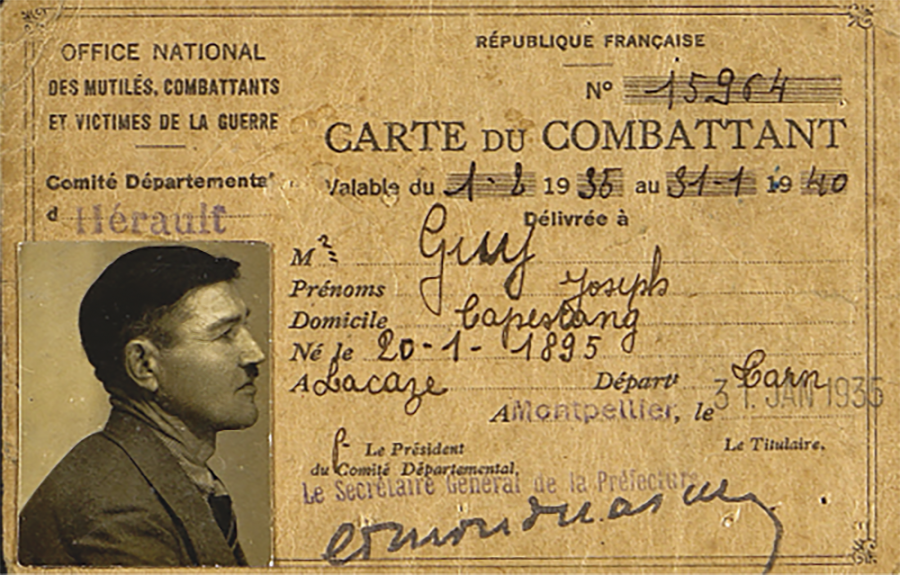 OFFICE NATIONAL
DES MUTILÉS, COMBATTANTS
ET VICTIMES DE LA GUERRE
Comité Départemental
d Hérault
RÉPUBLIQUE FRANÇAISE
Nº 15964
CARTE DU COMBATTANT
Valable du 1-2 1935 au 31-1 1940
Délivrée à
Mr Guy
Prénoms Joseph
Domicile Capestang
Né le 20-1-1895
A Lacaze Départt Tarn
A Montpellier, le 31 JAN 1935
Le Président
du Comité Départemental,
Le Titulaire,
Le Secrétaire Général de la Préfecture